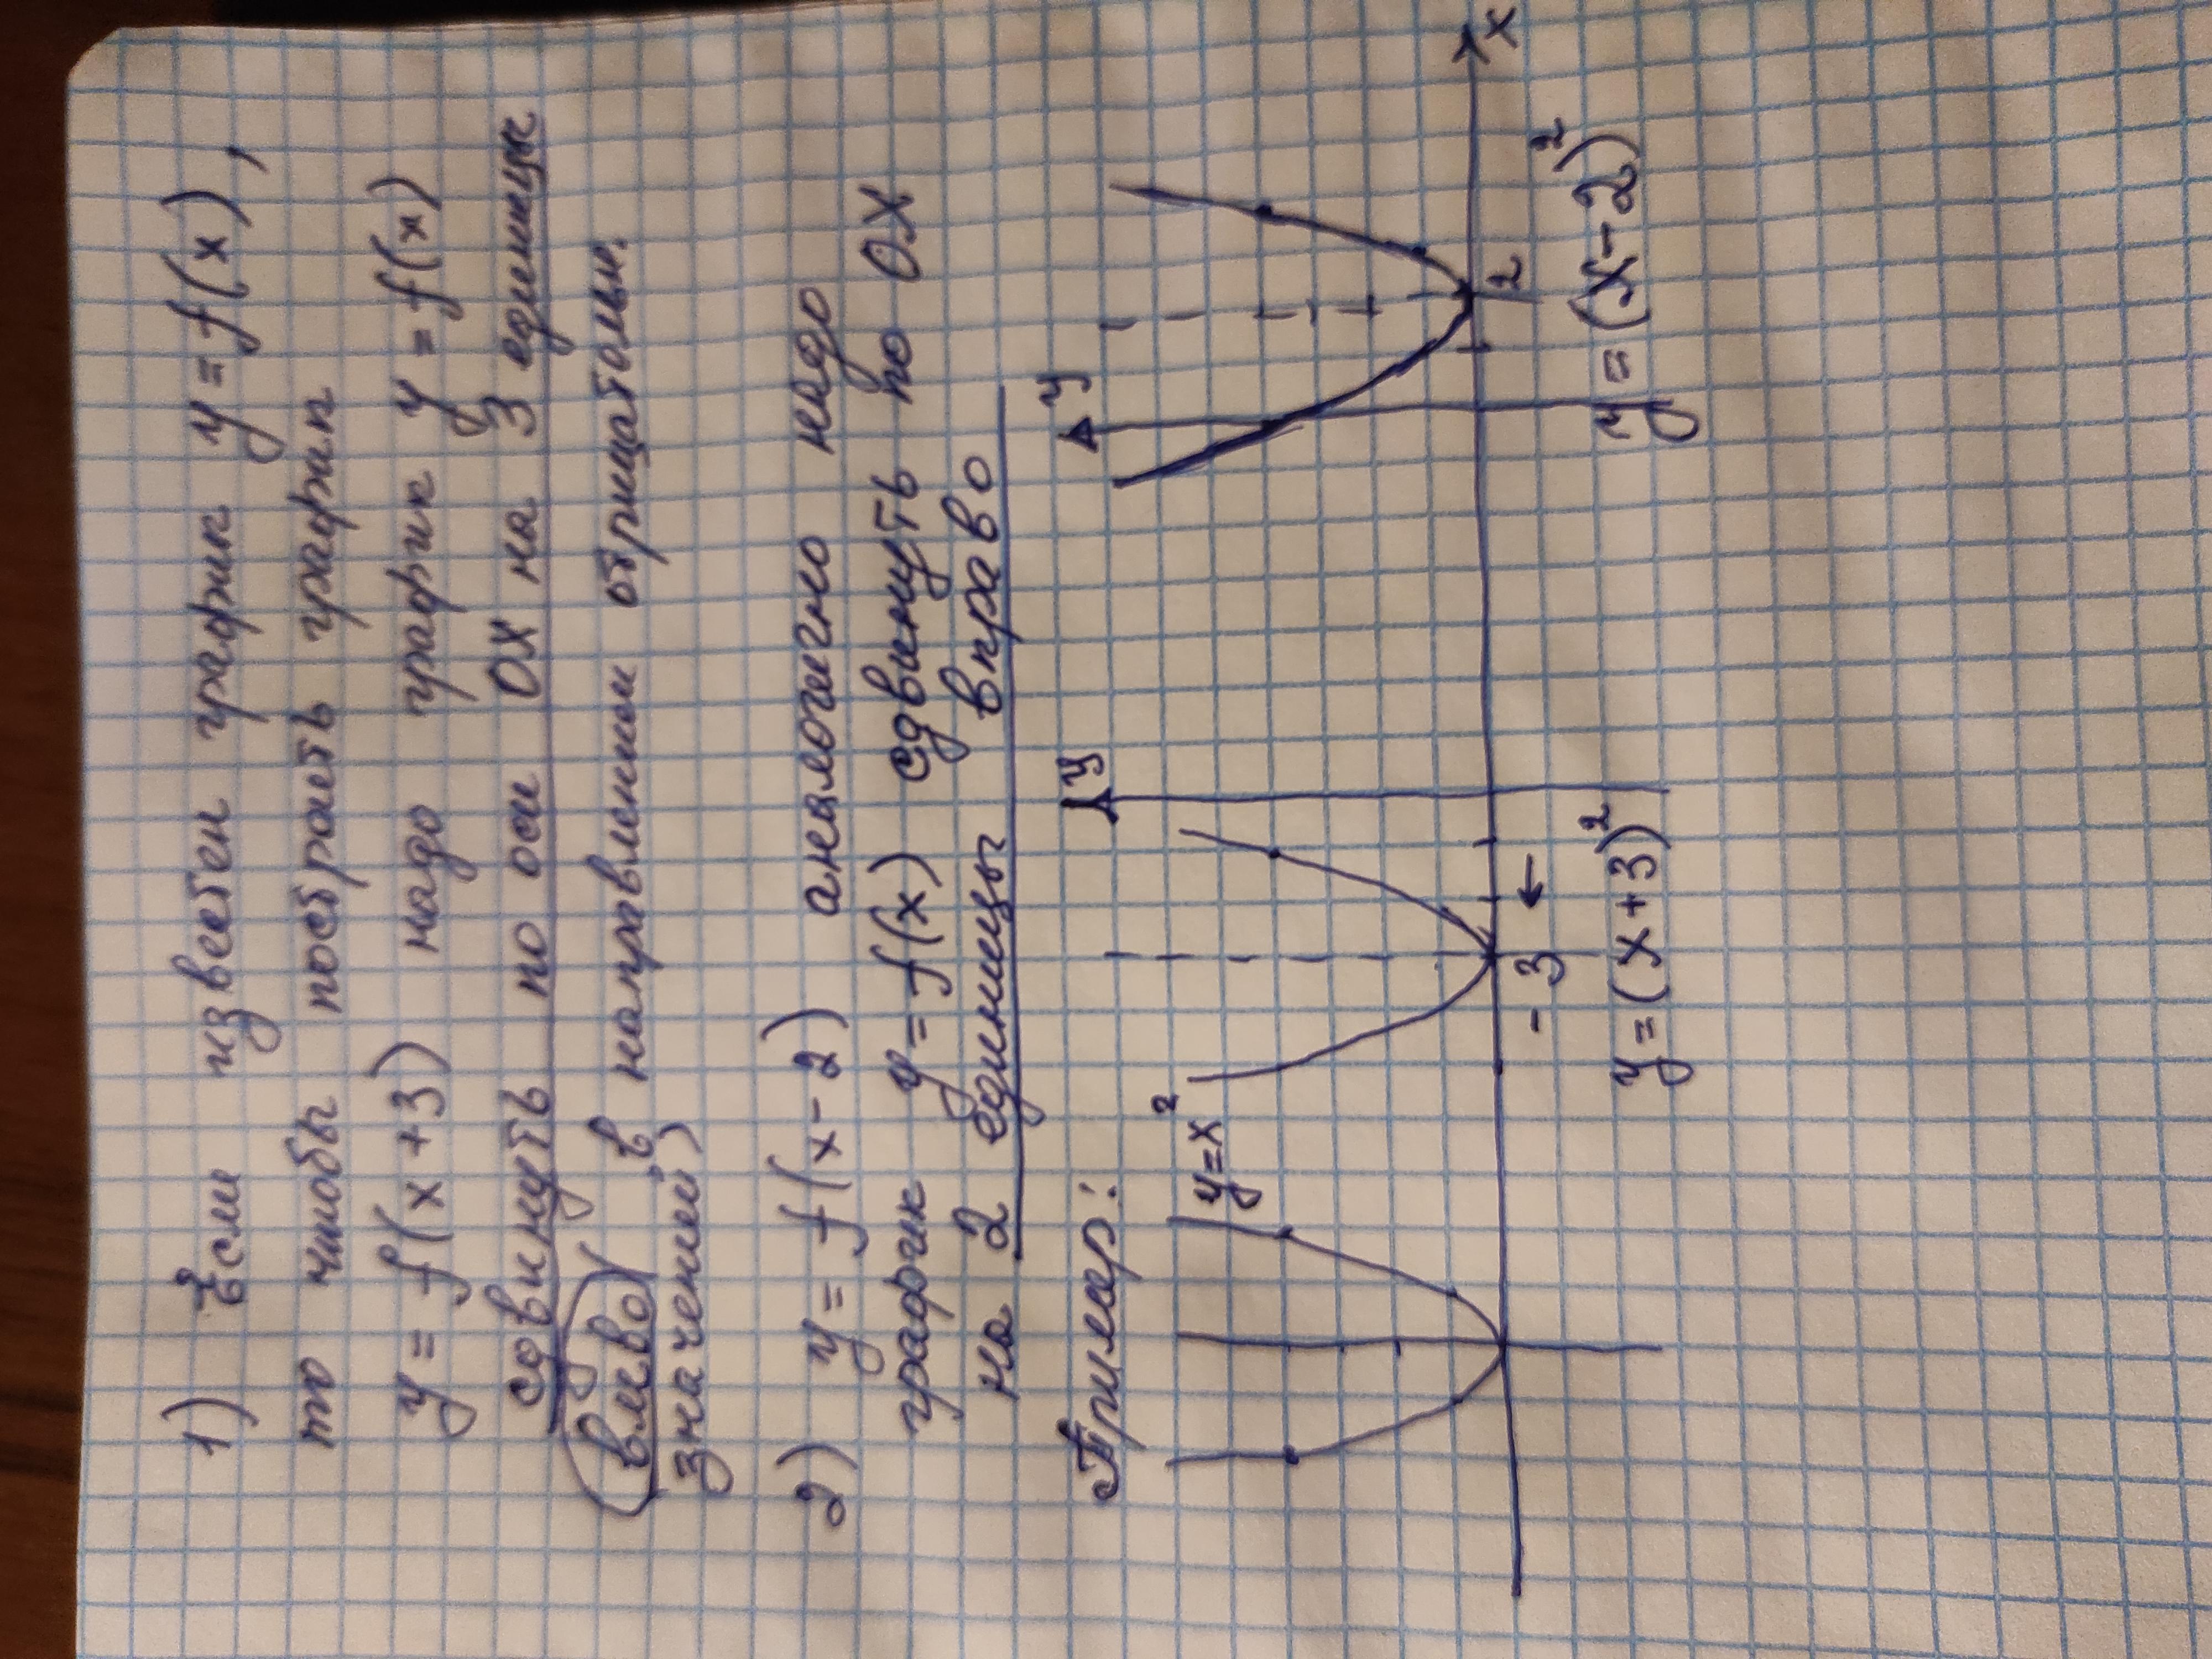 1) Если известен график y = f(x),
то чтобы построить график
y = f(x+3) надо график y = f(x)
сдвинуть по оси OX на 3 единицы
(влево) (в направлении отрицательн.
значений)
2) y = f(x-2) аналогично надо
график y = f(x) сдвинуть по OX
на 2 единицы вправо
Пример:
y=x²
y
y
x
-3 ←
2
y=(x+3)²
y=(x-2)²